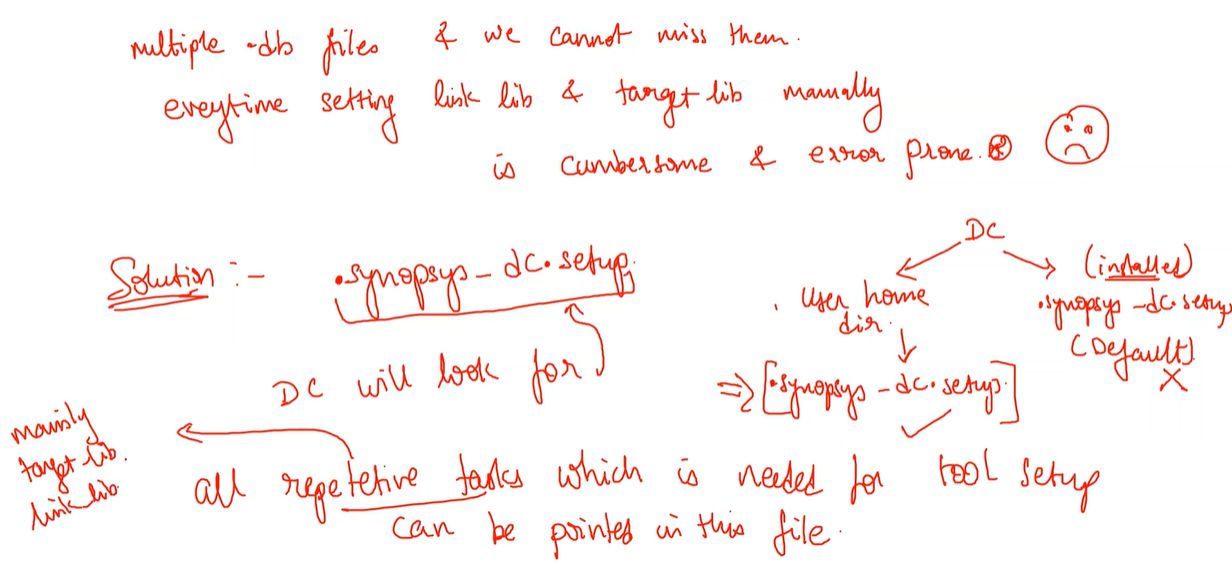 multiple .db files & we cannot miss them.
eveytime setting link lib & target lib manually
is cumbersome & error prone.
Solution :- .synopsys_dc.setup
DC will look for
DC
User home
dir.
[.synopsys_dc.setup]
(installed)
.synopsys_dc.setup
(Default)
mainly
target lib.
link lib
all repetetive tasks which is needed for tool setup
can be printed in this file.